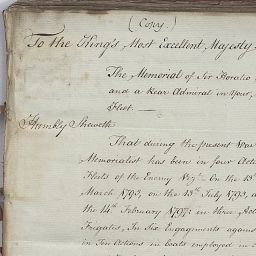 (Copy)
To the King's Most Excellent Majesty
The Memorial of Sir Horatio
and a Rear Admiral in Your
Fleet.—
Humbly Sheweth
That during the present War
Memorialist has been in four Acti
Fleets of the Enemy Viz:t On the 13th
March 1795, on the 13th July 1795,
the 14th February 1797: in three Act
Frigates, in Six Engagements against
in Ten Actions in boats employed in c